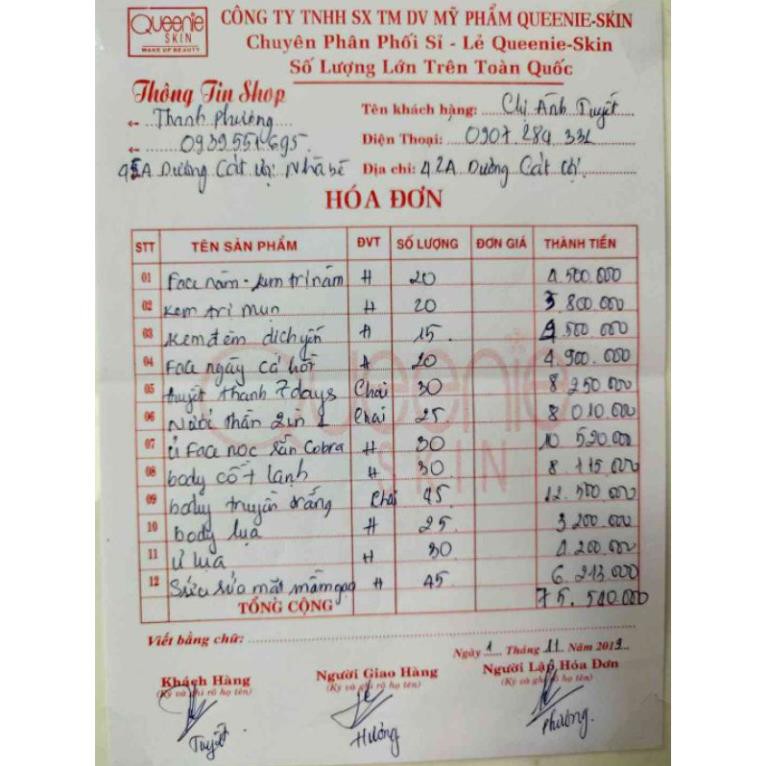 Queenie
SKIN
MAKE UP BEAUTY
CÔNG TY TNHH SX TM DV MỸ PHẨM QUEENIE-SKIN
Chuyên Phân Phối Sỉ - Lẻ Queenie-Skin
Số Lượng Lớn Trên Toàn Quốc
Thông Tin Shop
Thanh Phương
0939551695
Dường Cát Nhà bè
Tên khách hàng: Chị Ánh Tuyết
Điện Thoại: 0907.284 331
Địa chỉ: 42A Dường Cát
HÓA ĐƠN
STT TÊN SẢN PHẨM ĐVT SỐ LƯỢNG ĐƠN GIÁ THÀNH TIỀN
01 Face nám - kem trị nám H 20 4 500.000
02 Kem trị mụn H 20 3 800 000
03 Kem đêm dịch yến H 15 500 000
04 Face ngày cá hồi H 20 4.900.000
05 tuyết thanh 7days Chai 30 8 250 000
06 Nước thần 2in 1 Chai 25 8 010 000
07 Ủ Face nọc rắn Cobra H 30 10 520 000
08 body cốt lạnh H 30 8 115 000
09 body truyền trắng Chai 45 12.500 000
10 body lụa H 25 3 200 000
11 Ủ lụa H 30 4 200 000
12 Sữa rửa mặt mầm gạo H 45 6 213 000
TỔNG CỘNG 75.510 000
Viết bằng chữ:
Ngày 1 Tháng 11 Năm 2019
Khách Hàng Người Giao Hàng Người Lập Hóa Đơn
(Ký và ghi rõ họ tên) (Ký và ghi rõ họ tên) (Ký và ghi rõ họ tên)
Tuyết Hương Phương
Queenie
SKIN